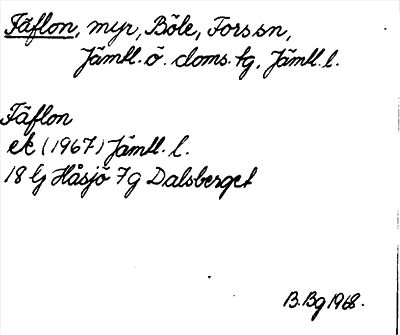 Fäflon, myr, Böle, Fors sn,
Jämtl. ö. doms. tg, Jämtl. l.
Fäflon
ek (1967) Jämtl. l.
18 G Håsjö 7g Dalsberget
B. Bg 1968.